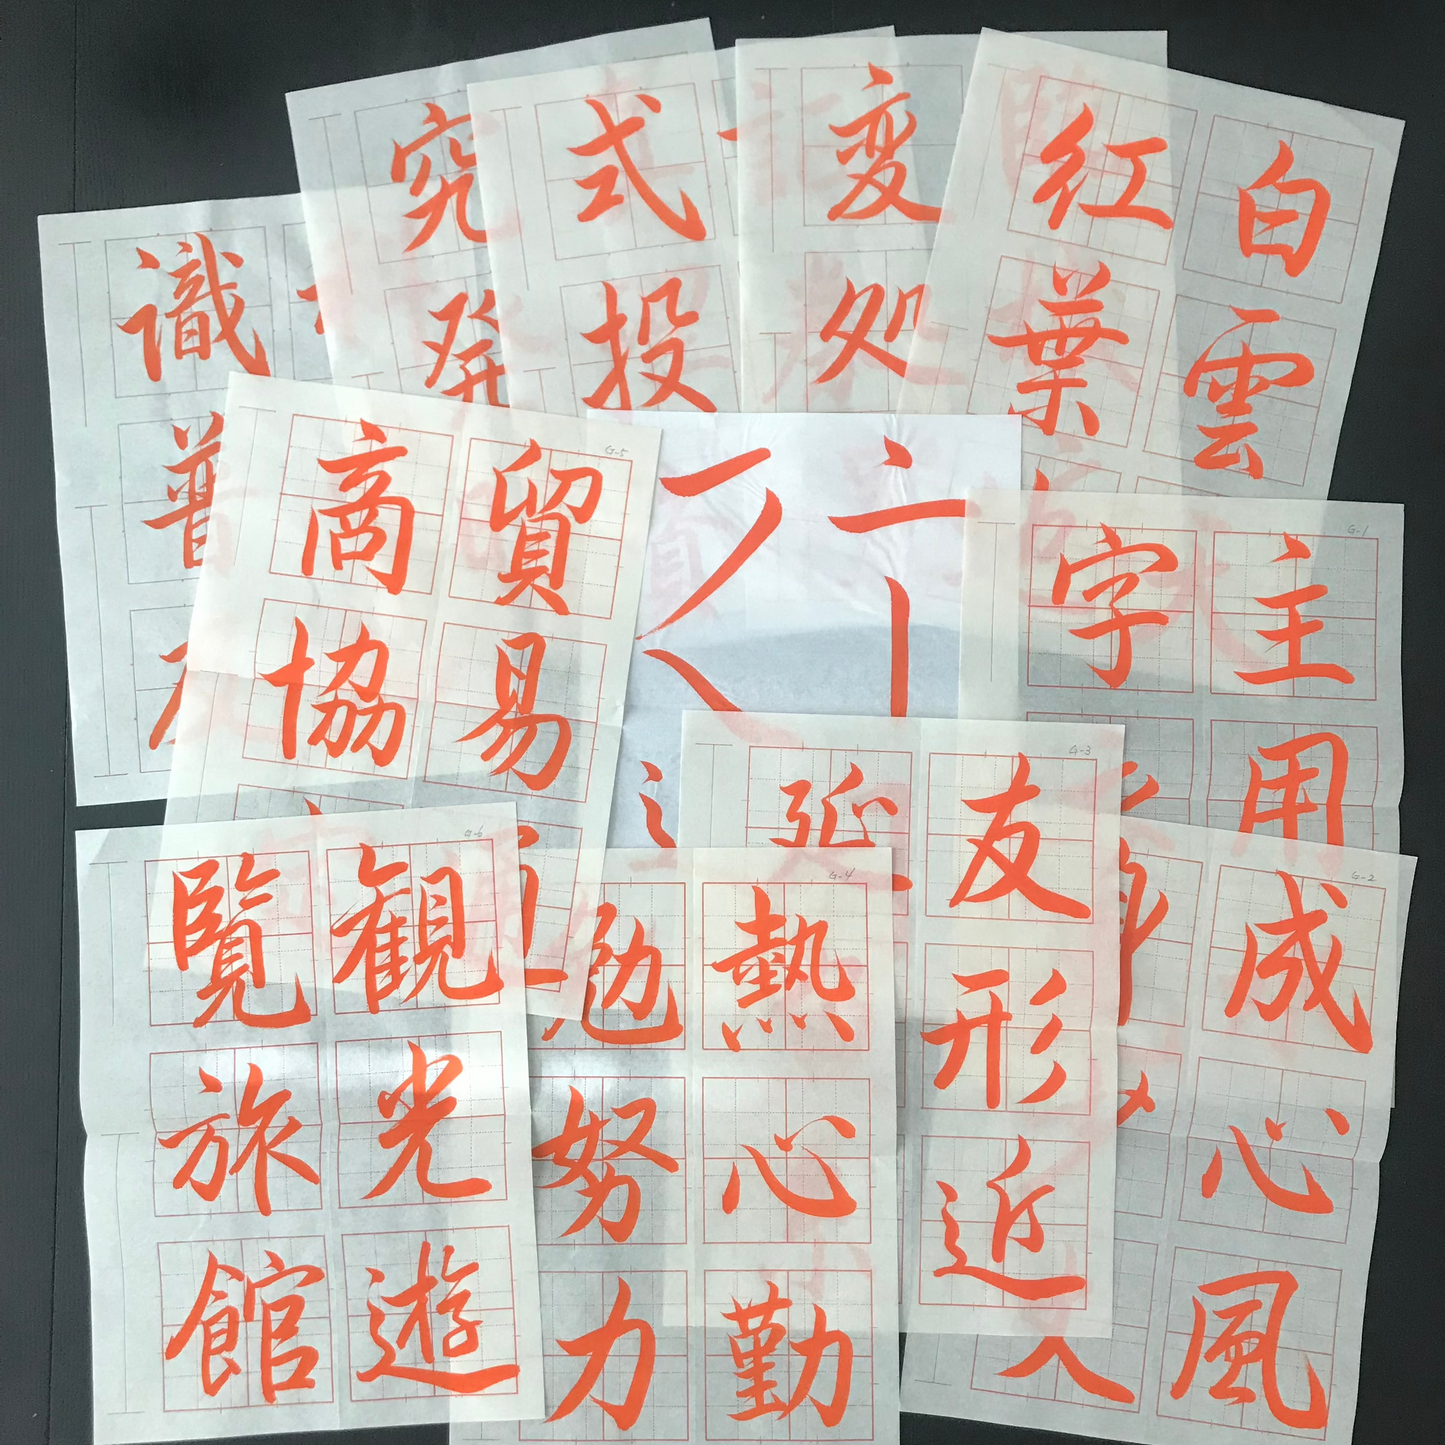 究
発
式
投
変
処
白
雲
紅
葉
識
普
G-5
貿
易
商
協
G-1
主
用
字
G-3
友
形
近
延
G-2
成
心
風
G-4
熱
心
勤
勉
努
力
G-6
観
光
遊
覧
旅
館